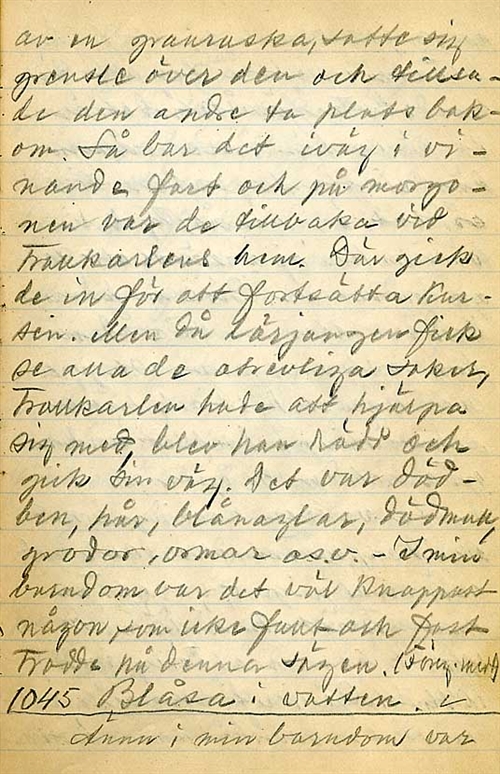 av en granruska, satte sig
grensle över den och tillsa-
de den andre ta plats bak-
om. Så bar det iväg i vi-
nande fart och på morgo-
nen var de tillbaka vid
Trollkarlens hem. Där gick
de in för att fortsätta kur-
sen. Men då lärjungen fick
se alla de otrevliga saker,
Trollkarlen hade att hjälpa
sig med, blev han rädd och
gick sin väg. Det var död-
ben, hår, blånaglar, dödmull,
grodor, ormar o.s.v. - I min
barndom var det väl knappast
någon, som icke fullt och fast
trodde på denna sägen.
1045 Blåsa i vatten.
Ännu i min barndom var